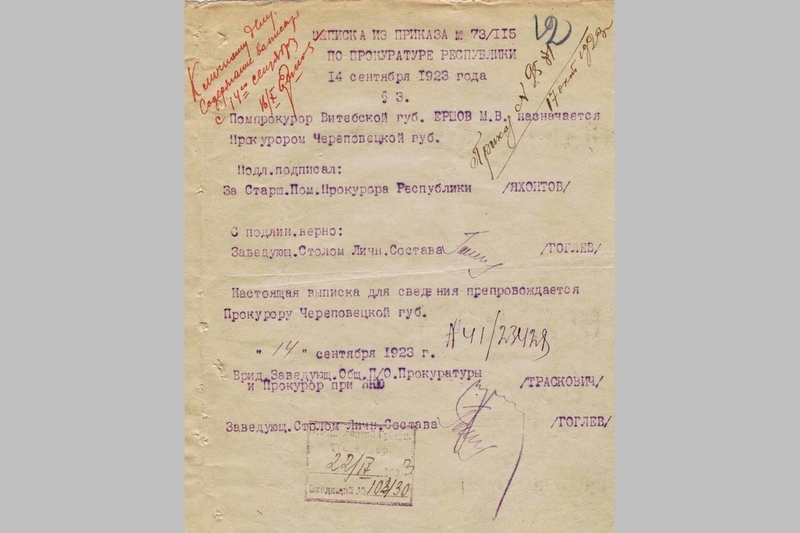 ВЫПИСКА ИЗ ПРИКАЗА № 73/115
12
ПО ПРОКУРАТУРЕ РЕСПУБЛИКИ
14 сентября 1923 года
К личному делу.
Содержание
с 14го сентября
16/X
Приказ N 95
17 окт 1923
§ 3.
Помпрокурор Витебской губ. ЕРШОВ М.В. назначается
Прокурором Череповецкой губ.
Подл.подписал:
За Старш.Пом.Прокурора Республики /ЯХОНТОВ/
С подлин.верно:
Заведующ.Столом Личн.Состава /ГОГЛЕВ/
Настоящая выписка для сведения препровождается
Прокурору Череповецкой губ.
N 41/23429
" 14 " сентября 1923 г.
Врид.Заведующ.Общ.П/О.Прокуратуры
и Прокурор при НКЮ /ТРАСКОВИЧ/
Заведующ.Столом Личн.Состава /ГОГЛЕВ/
22/IX 3
Входящий № 103/30